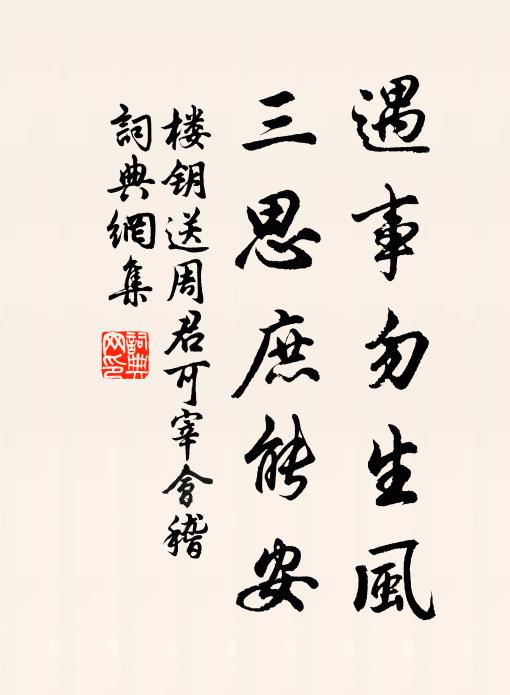 遇事勿生風
三思庶能安
楼钥送周君可宰會稽
詞典網集
詞典網印